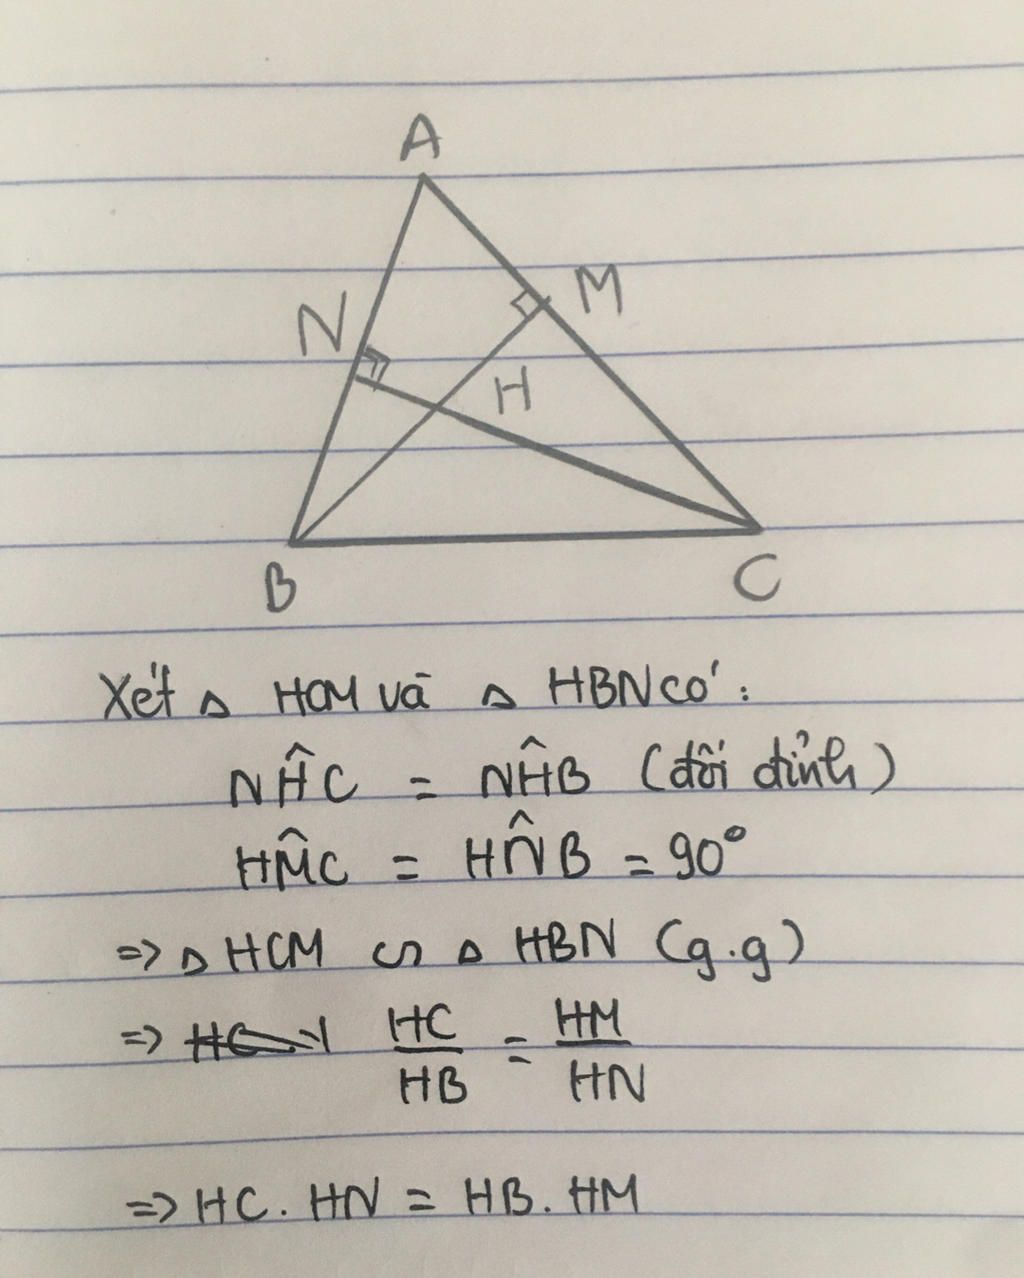 A
N
M
H
B
C
Xét Δ HCM và Δ HBN có :
NĤC = NĤB (đối đỉnh)
HM̂C = HN̂B = 90°
=> Δ HCM ∽ Δ HBN (g.g)
=> HC/HB = HM/HN
=> HC . HN = HB . HM